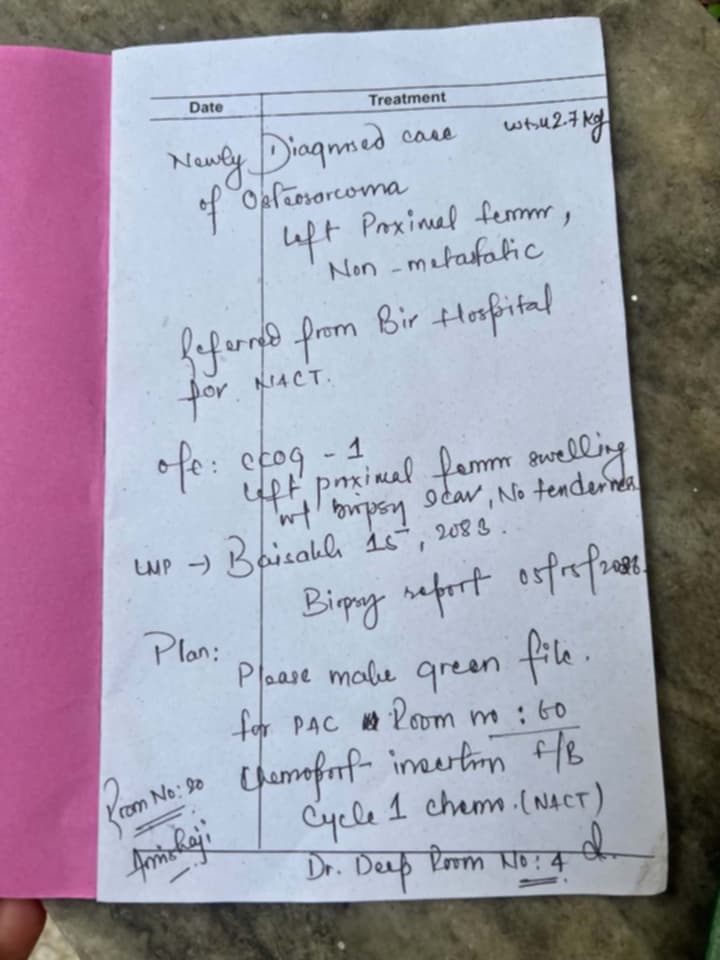 Date Treatment
wt: 42.7 kg
Newly Diagnosed case
of Osteosarcoma
Left Proximal femur,
Non-metastatic
Referred from Bir Hospital
for NACT.
o/e: ECOG - 1
Left proximal femur swelling
wt biopsy scar, No tenderness
LMP → Baisakh 15, 2083.
Biopsy report
Plan:
Please make green file.
for PAC Room no: 60
Chemoport insertion f/B
Room No: 20
Cycle 1 chemo. (NACT)
Dr. Deep Room No: 4